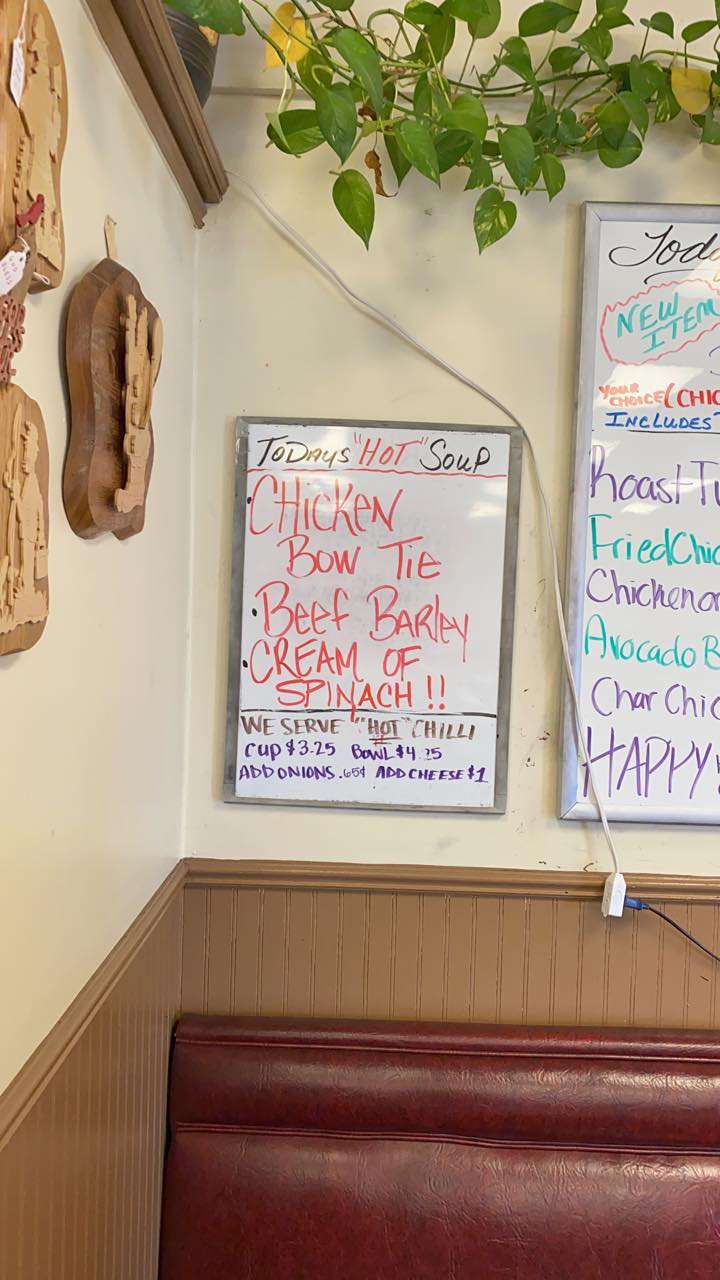 TODAYS "HOT" SOUP
• CHICKEN
BOW TIE
• BEEF BARLEY
• CREAM OF
SPINACH !!
WE SERVE "HOT" CHILLI
CUP $3.25 BOWL $4.25
ADD ONIONS .65¢ ADD CHEESE $1
NEW
ITEM
YOUR
CHOICE (CHIC
INCLUDES
Roast
Fried Chic
Chicken
Avocado B
Char Chic
HAPPY